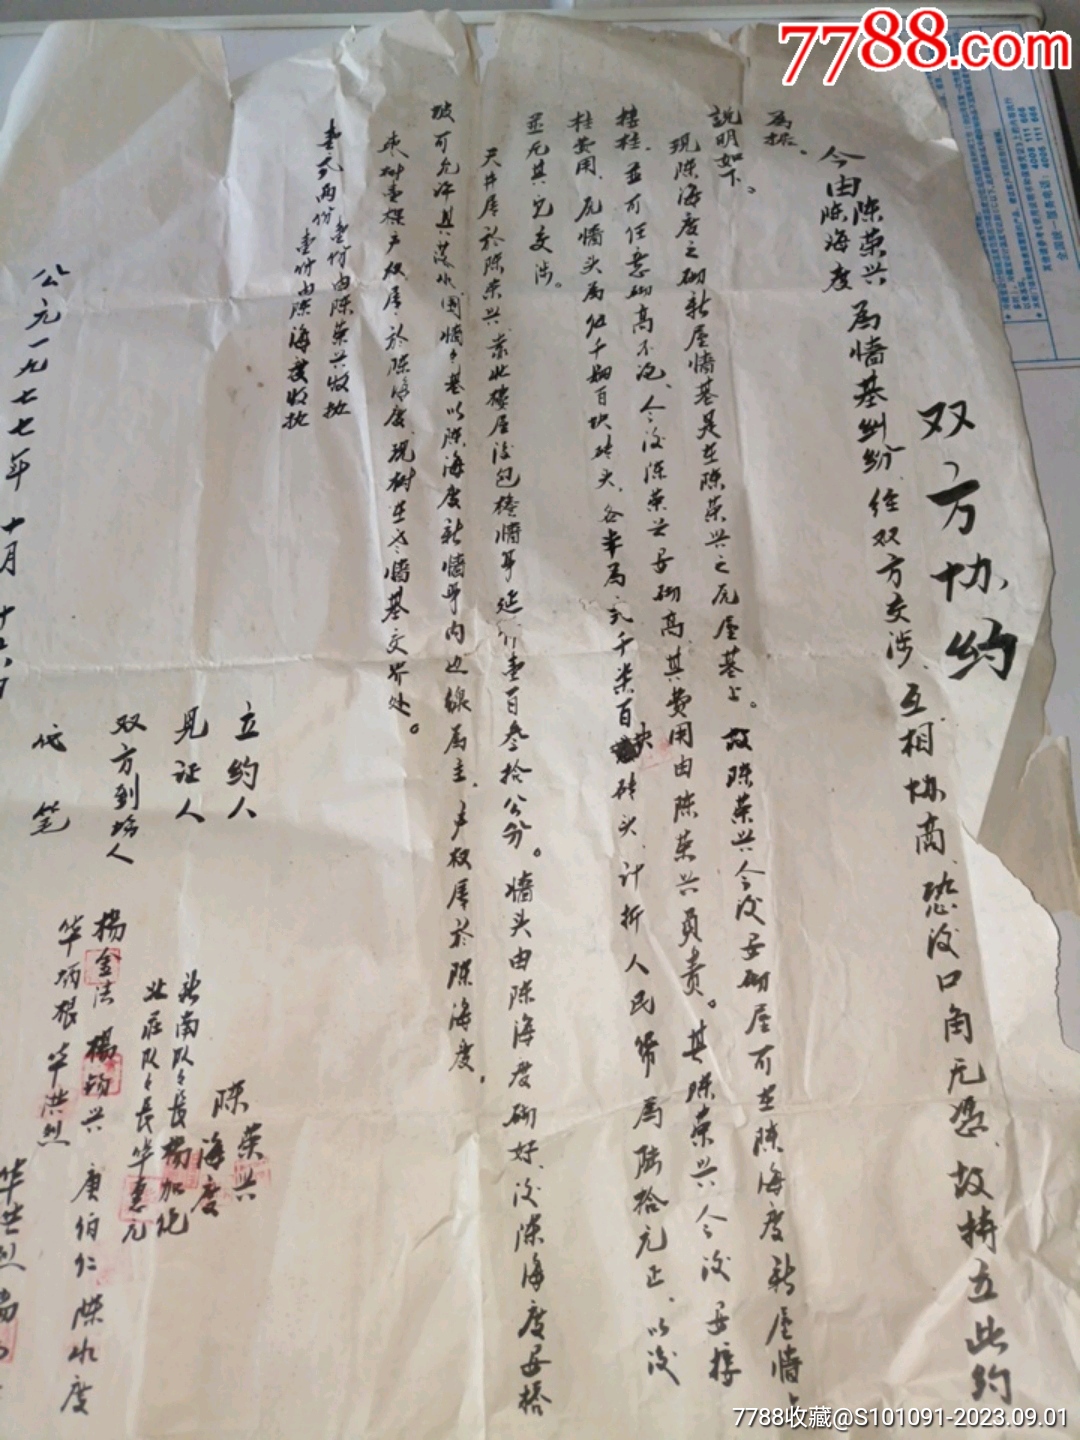 双方协约
今由陈荣兴陈海度为墙基纠纷、经双方交涉、互相协商、恐后口角无凭、故特立此约
为据。
说明如下。
现陈海度之砌新屋墙基是在陈荣兴之瓦屋基上。故陈荣兴今后要砌屋可在陈海度新屋墙上
接柱、并可任意砌高不论、今后陈荣兴要砌高、其费用由陈荣兴负责。其陈荣兴今后要接
柱费用、瓦墙头为伍千捌百块砖头、各半为弍千柒百块砖头、计折人民币为陆拾元正、以后
并无其它交涉。
天井属於陈荣兴业北楼屋后包檐墙等延介壹百叁拾公分。墙头由陈海度砌好、后陈海度要搭
披可允许其落水围墙之基以陈海度新墙界内边线为主、产权属於陈海度。
枣树壹棵产权属於陈海度、现树在墙基交界处。
壹式两份壹份由陈荣兴收执
壹份由陈海度收执
立约人 陈荣兴
陈海度
见证人 新南队队长杨加伦
北庄队队长华惠元
双方到场人 杨金法 杨锡兴 唐伯仁 陈水度
华炳根 华洪烈
代笔 华洪烈
公元一九七七年十月十六日
7788.com
7788收藏@S101091-2023.09.01